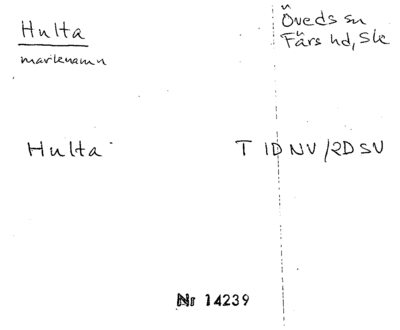 Hulta
marknamn
Öveds sn
Färs hd, Sk
Hulta
T 1D NV/2D SV
Nr 14239